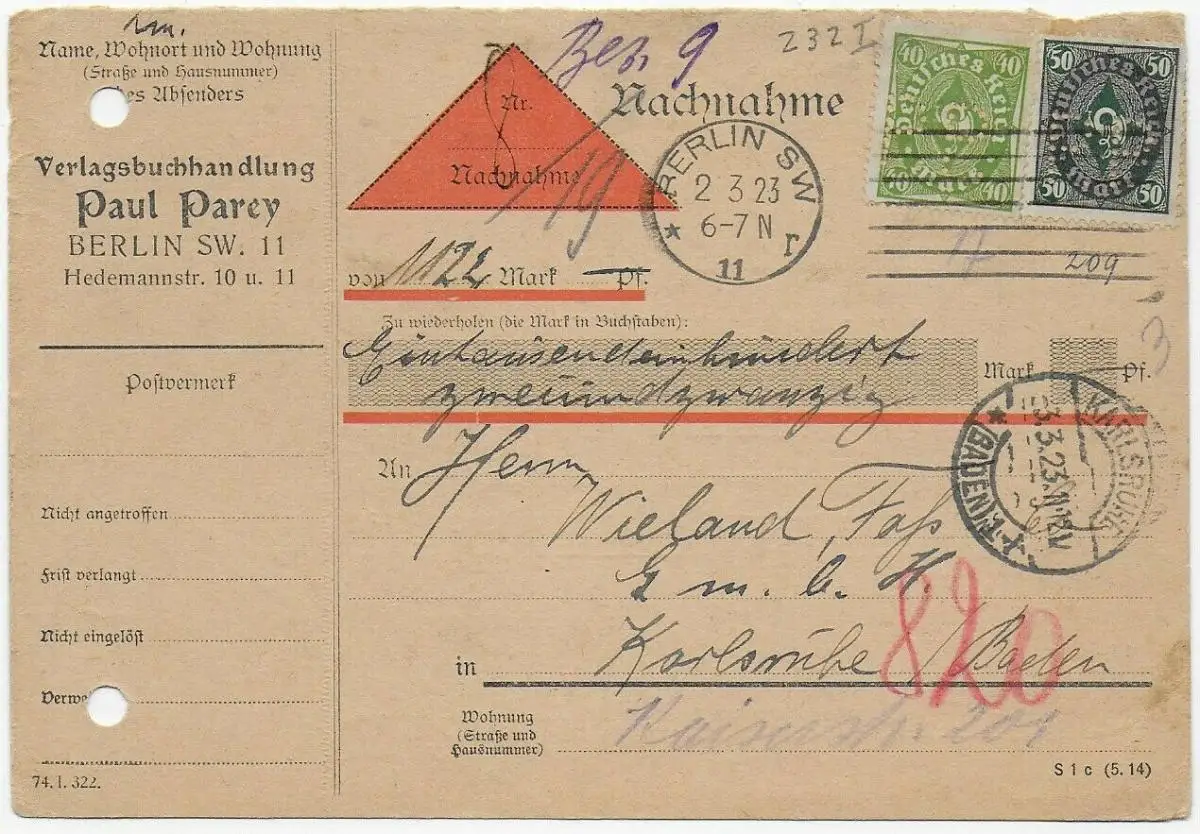 Name, Wohnort und Wohnung
(Straße und Hausnummer)
des Absenders
Verlagsbuchhandlung
Paul Parey
BERLIN SW. 11
Hedemannstr. 10 u. 11
Postvermerk
Nicht angetroffen
Frist verlangt
Nicht eingelöst
Verwe
74. I. 322.
Bez. 9
232 I
Nr. 8
Nachnahme
119
Nachnahme
BERLIN SW
2 3 23
6-7 N
* 11 r
40 40
Deutsches Reich
Mark
40 40
50 50
Deutsches Reich
Mark
50 50
209
von 1122 Mark Pf.
Zu wiederholen (die Mark in Buchstaben):
Eintausendeinhundert
zweiundzwanzig Mark Pf.
3
KARLSRUHE
3.3.23.11-12V
* (BADEN)
An Herrn
Wieland, Fass
G. m. b. H.
in Karlsruhe / Baden
820
Wohnung
(Straße und
Hausnummer)
Kaiserstr. 201
S 1 c (5. 14)